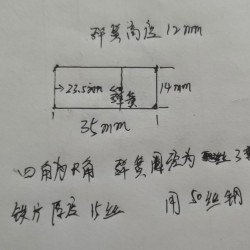 弹簧高度12mm
23.5mm
弹簧
14mm
35mm
四角为R角 弹簧圈项为 3
铁片厚度15丝 用50丝钢